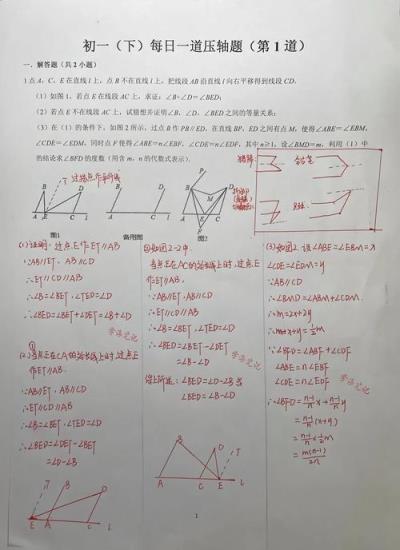 初一（下）每日一道压轴题（第1道）
一．解答题（共2小题）
1点A、C、E在直线l上，点B不在直线l上，把线段AB沿直线l向右平移得到线段CD．
（1）如图1，若点E在线段AC上，求证：∠B+∠D=∠BED；
（2）若点E不在线段AC上，试猜想并证明∠B、∠D、∠BED之间的等量关系；
（3）在（1）的条件下，如图2所示，过点B作PB∥ED，在直线BP、ED之间有点M，使得∠ABE=∠EBM，
∠CDE=∠EDM，同时点F使得∠ABE=n∠EBF，∠CDE=n∠EDF，其中n≥1，设∠BMD=m，利用（1）中
的结论求∠BFD的度数（用含m，n的代数式表示）．
猪蹄
铅笔
过拐点作平行线
图1
备用图
图2
(1)证明：过点E作ET∥AB
∵AB∥ET，AB∥CD
∴ET∥CD∥AB
∴∠B=∠BET，∠TED=∠D
∴∠BED=∠BET+∠DET=∠B+∠D
学浩笔记
①
(2)当点E在CA的延长线上时，过点E
作ET∥AB
∵AB∥ET，AB∥CD
∴ET∥CD∥AB
∴∠B=∠BET，∠TED=∠D
∴∠BED=∠DET-∠BET
=∠D-∠B
学浩笔记
②如图2-2中，
当点E在AC的延长线上时，过点E
作ET∥AB，
∵AB∥ET，AB∥CD
∴ET∥CD∥AB
∴∠B=∠BET，∠TED=∠D
∴∠BED=∠BET-∠DET
=∠B-∠D
学浩笔记
综上所述：∠BED=∠D-∠B 或
∠BED=∠B-∠D
(3)如图2，设∠ABE=∠EBM=x
∠CDE=∠EDM=y
∵AB∥CD
∴∠BMD=∠ABM+∠CDM
∴m=2x+2y
∴x+y=½m
∵∠BFD=∠ABF+∠CDF
∠ABE=n∠EBF
∠CDE=n∠EDF
学浩笔记
∴∠BFD=(n-1)/n x+(n-1)/n y
=(n-1)/n (x+y)
=(n-1)/n×½m
=m(n-1)/2n
1